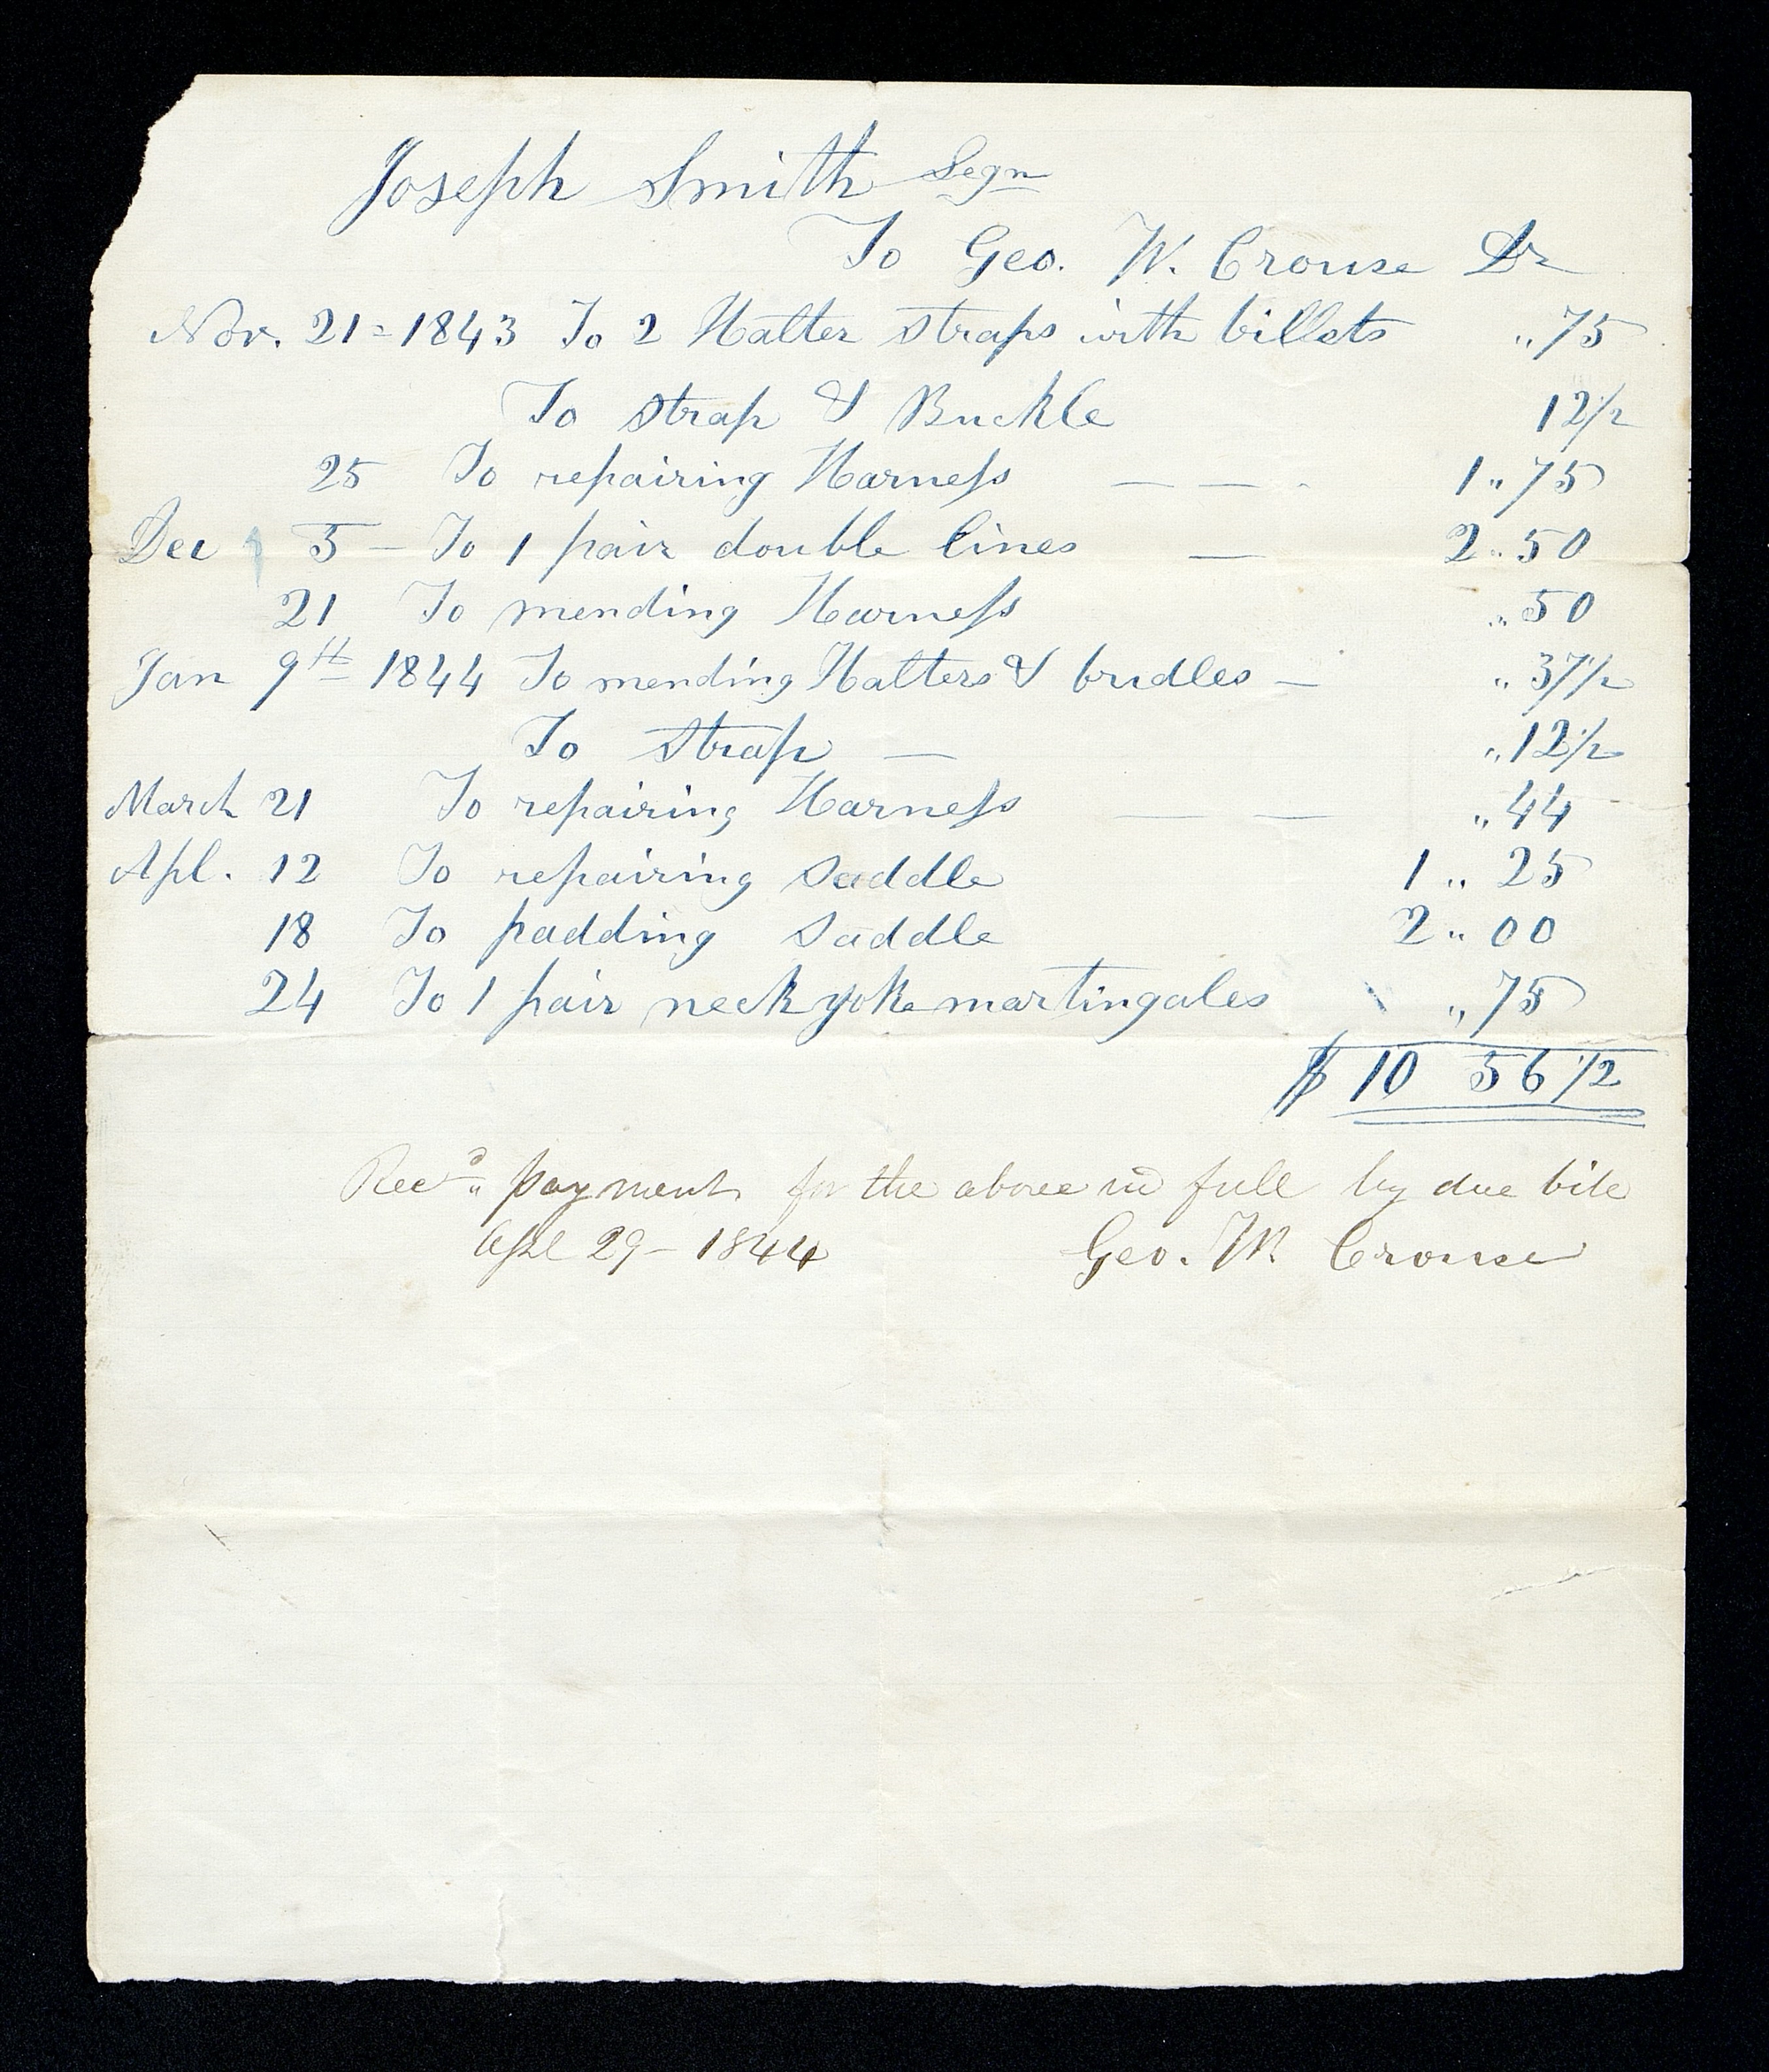 Joseph Smith
To Geo. W. Crouse Dr
Nov. 21=1843 To 2 Halter straps with billets "75
To strap & Buckle 12½
25 To repairing Harness — — - 1"75
Dec 5 — To 1 pair double lines — 2"50
21 To mending Harness "50
Jan 9th 1844 To mending Halters & bridles — "37½
To strap — "12½
March 21 To repairing Harness — — "44
Apl. 12 To repairing saddle 1"25
18 To padding saddle 2"00
24 To 1 pair neck yoke martingales "75
$10 56½
Recd payment for the above in full by due bile
Apl 29-1844 Geo. W. Crouse